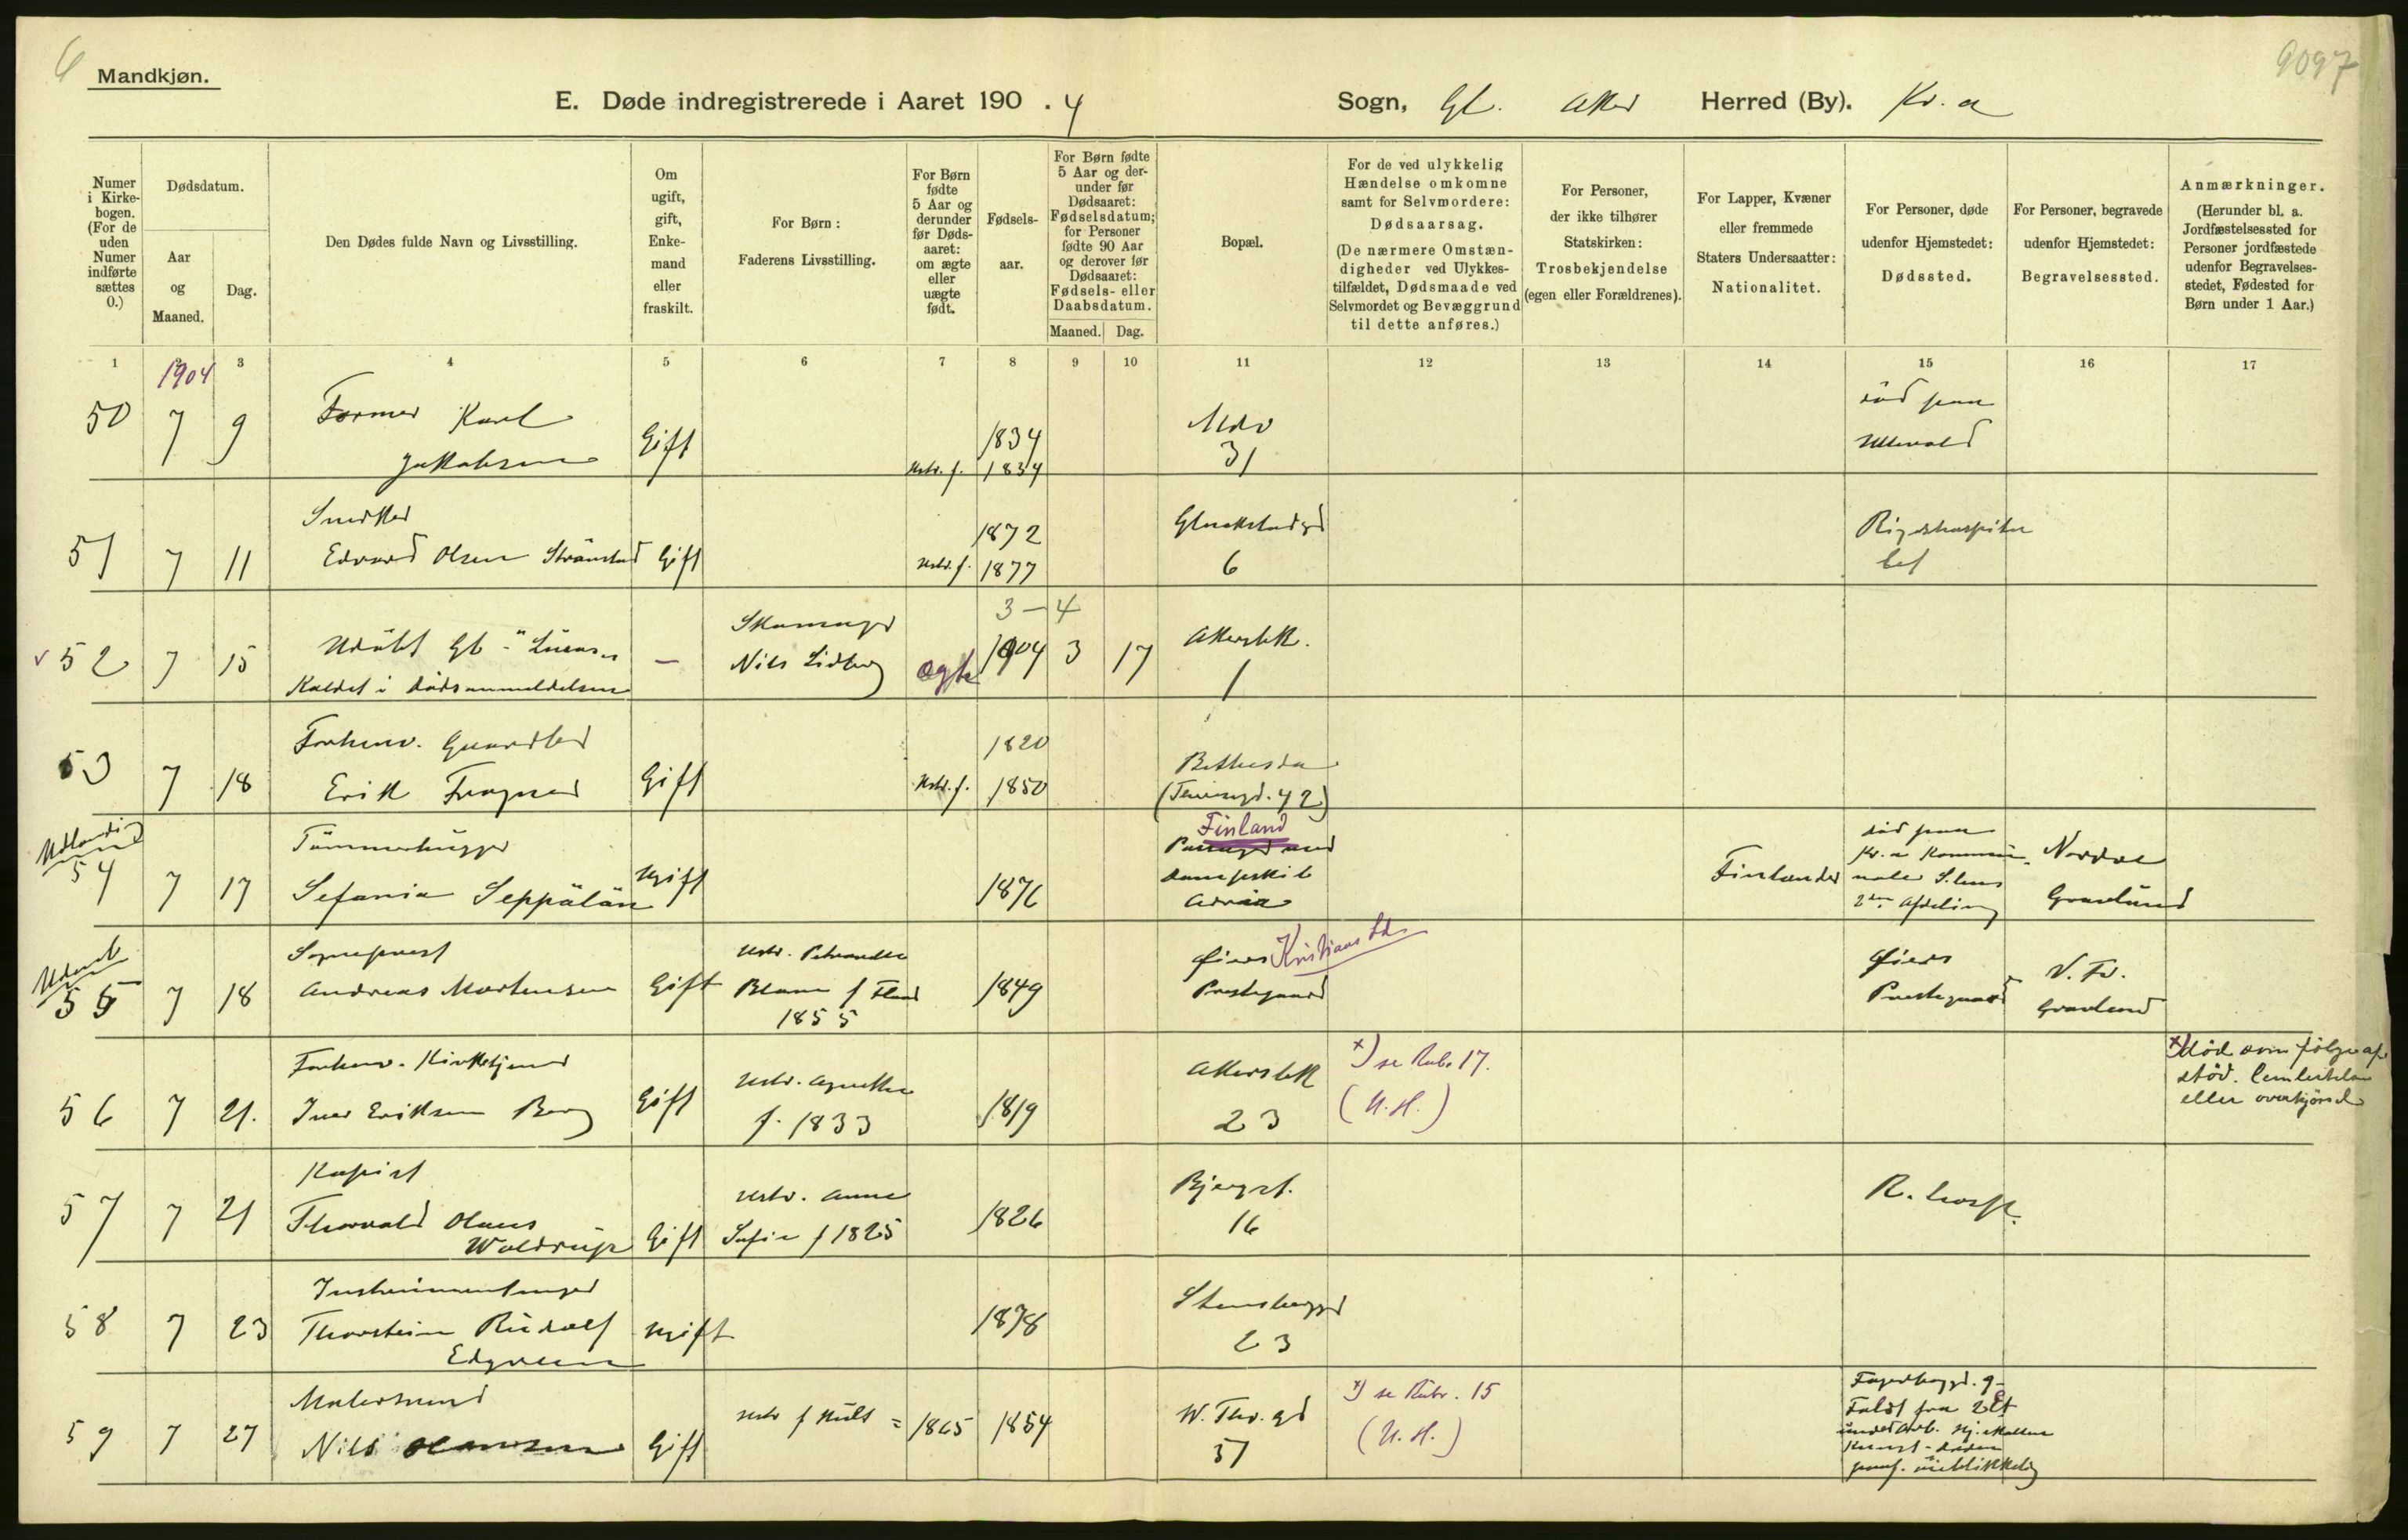 6
9097
Mandkjøn.
E. Døde indregistrerede i Aaret 190 . 4
Sogn, Gl. Aker Herred (By). Kr. a
Numer
i Kirke-
bogen.
(For de
uden
Numer
indførte
sættes
0.)
Dødsdatum.
Aar
og
Maaned.
Dag.
Den Dødes fulde Navn og Livsstilling.
Om
ugift,
gift,
Enke-
mand
eller
fraskilt.
For Børn :
Faderens Livsstilling.
For Børn
fødte
5 Aar og
derunder
før Døds-
aaret:
om ægte
eller
uægte
født.
Fødsels-
aar.
For Børn fødte
5 Aar og der-
under før
Dødsaaret:
Fødselsdatum;
for Personer
fødte 90 Aar
og derover før
Dødsaaret:
Fødsels- eller
Daabsdatum.
Maaned. Dag.
Bopæl.
For de ved ulykkelig
Hændelse omkomne
samt for Selvmordere:
Dødsaarsag.
(De nærmere Omstæn-
digheder ved Ulykkes-
tilfældet, Dødsmaade ved
Selvmordet og Bevæggrund
til dette anføres.)
For Personer,
der ikke tilhører
Statskirken:
Trosbekjendelse
(egen eller Forældrenes).
For Lapper, Kvæner
eller fremmede
Staters Undersaatter:
Nationalitet.
For Personer, døde
udenfor Hjemstedet:
Dødssted.
For Personer, begravede
udenfor Hjemstedet:
Begravelsessted.
Anmærkninger.
(Herunder bl. a.
Jordfæstelsessted for
Personer jordfæstede
udenfor Begravelses-
stedet, Fødested for
Børn under 1 Aar.)
1 2 3 4 5 6 7 8 9 10 11 12 13 14 15 16 17
1904
50 7 9
Former Karl
Jakobsen
Gift
1834
Hstr. f. 1834
31
død paa
Ullevold
51 7 11
Snedker
Edvard Olsen Strömstad
Gift
1872
Hstr. f. 1877
6
Rigshospita
let
52 7 15
Udöbt Gb.
Kaldet i dödsanmeldelsen
—
Nils Lidberg
ægte
3 — 4
1904 3 17
Akersbk.
1
53 7 18
Forhenv. Gaardbr
Erik
Gift
1820
Hstr. f. 1850
Bethesda
(Theresgd. 42)
Udlandin
54 7 17
Tömmerhugger
Sefania Seppälän
Ugift
1876
Finland
Passager med
dampskib
Finlænder
død paa
Kr. a Kommu-
nale S.hus
2den Afdeling
Nordre
Gravlund
Udenb
55 7 18
Sogneprest
Andreas Mortensen
Gift
Hstr. Petrandla
1855
1849
Øiers Kristians
Prestegaard
Øiers
Prestegaard
V. Fr.
Gravlund
56 7 21.
Forhenv. Kirketjener
Iver Eriksen Berg
Gift
Hstr. Agnethe
f. 1833
1819
Akersbk
23
x) se Rub. 17.
(U. H.)
x) död som følge af
stöd. lemlestelse
eller overkjörsel
57 7 21
Kopist
Thorvald Olaus
Woldrup
Gift
Hstr. Anne
Sofie f 1825
1826
Bjergst.
16
R. hosp.
58 7 23
Instrumentmager
Thorstein Rudolf
Edgreen
Ugift
1878
Stensberggd
23
59 7 27
Malersvend
Nils Hansen
Gift
1865
1854
W. Thr. gd
x) se Rubr. 15
(U. H.)
Fagerborggd. 9
Faldt fra 2 Et
under Arb.